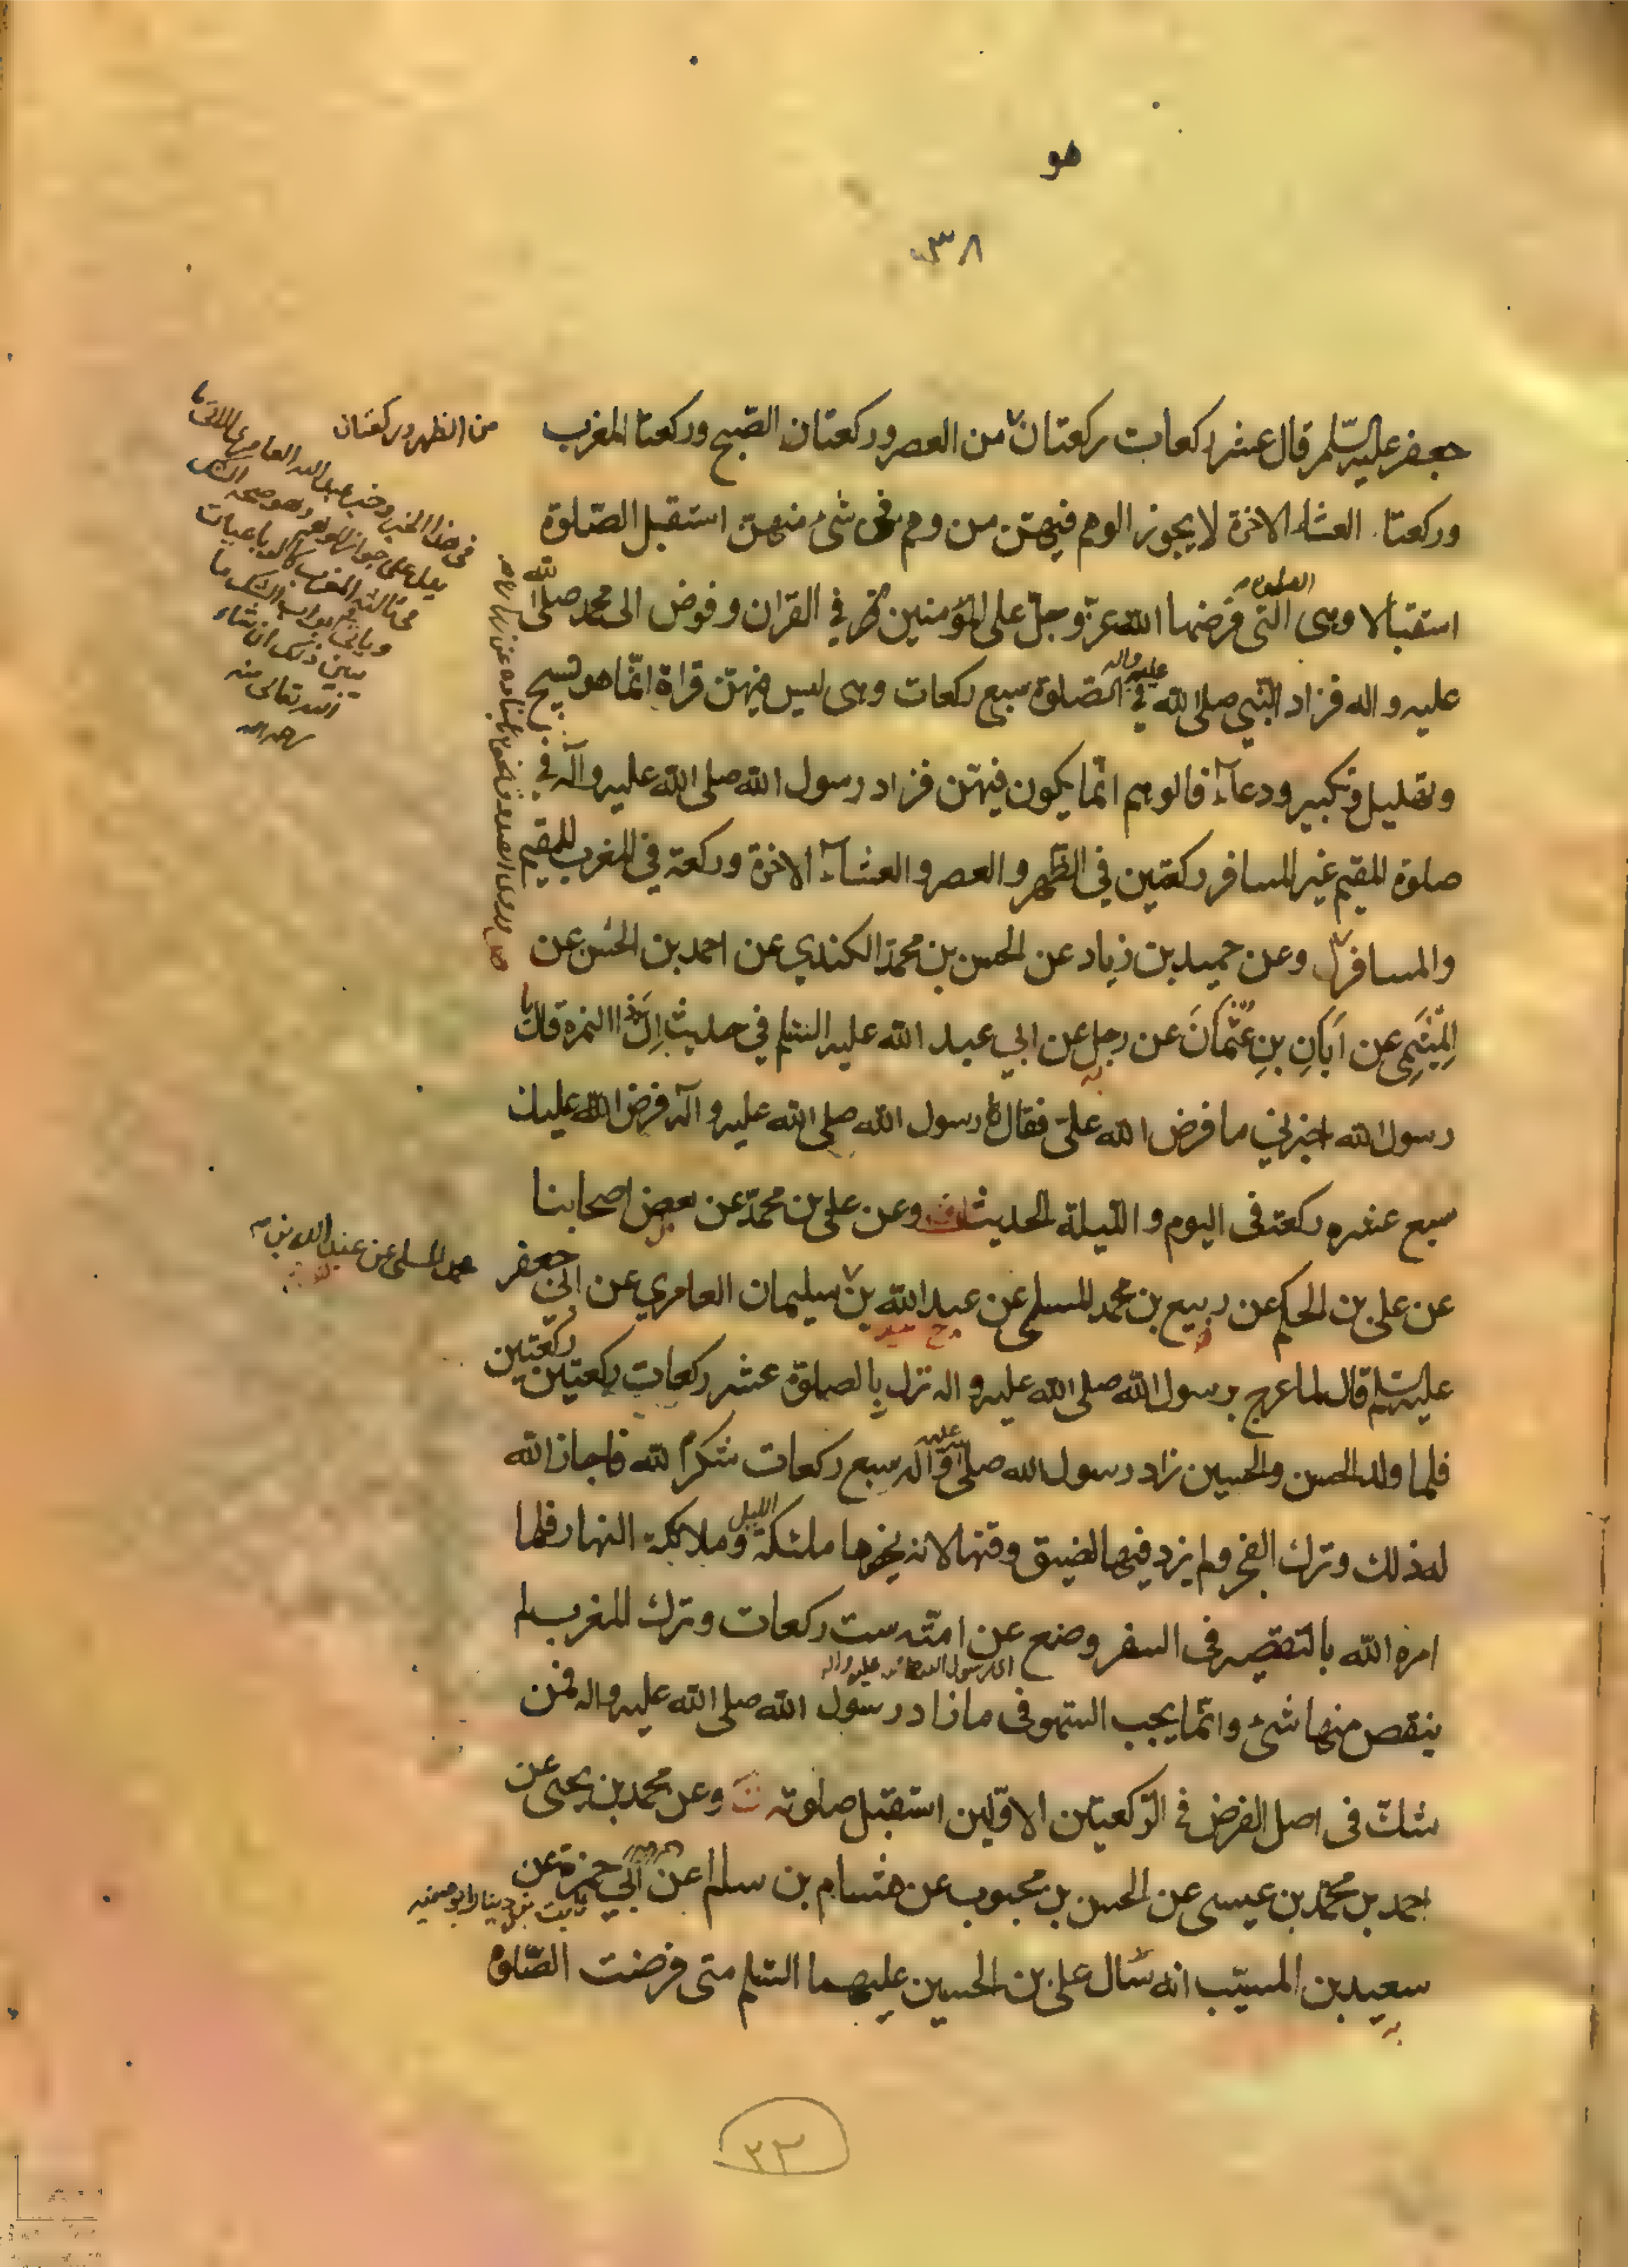 هو
٣٨
جعفر عليه السّلم قال عشر ركعات ركعتان من العصر وركعتان الصّبح وركعتا المغرب
من الظهر وركعتان
وركعتا العشاء الاخرة لا يجوز الوهم فيهنّ من وهم فى شىء منهنّ استقبل الصّلوة
استقبالا وهى الصلوة التى فرضها الله عزّوجلّ على المؤمنين في القران وفوض الى محمد صلى الله
عليه واله فزاد النّبى صلى الله عليه واله في الصّلوة سبع ركعات وهى ليس فيهنّ قراة انّما هو تسبيح
وتهليل وتكبير ودعآء فالوهم انّما يكون فيهنّ فزاد رسول الله صلى الله عليه وآله في
صلوة المقيم غير المسافر ركعتين في الظّهر والعصر والعشآء الاخرة وركعة في المغرب للمقيم
والمسافر وعن حميد بن زياد عن الحسن بن محمّد الكندي عن احمد بن الحسن عن
المِيثَمِى عن اَبَانِ بنِ عُثمَانَ عن رجل عن ابي عبد الله عليه السّلم في حديث اِنَّ النمرة قال يا
رسول الله اخبرني ما فرض الله علىّ فقال له رسول الله صلى الله عليه وآله فرض الله عليك
سبع عشره ركعة فى اليوم والليلة الحديث وعن على بن محمّد عن بعض اصحابنا
عن على بن الحكم عن ربيع بن محمد المسلى عن عبد الله بن سليمان العامري عن ابي جعفر
محمد المسلى عن عبد الله بن
عليه السّلم قال لما عرج برسول الله صلى الله عليه واله نزل بالصلوة عشر ركعات ركعتين ركعتين
فلما ولد الحسن والحسين زاد رسول الله صلى الله عليه وآله سبع ركعات شكرا لله فاجاز الله
له ذلك وترك الفجر ولم يزد فيها لضيق وقتها لانه يحضرها ملئكة الليل وملائكة النهار فلما
امره الله بالتقصير فى السفر وضع عن امّته ست ركعات وترك المغرب لم
ينقص منها شىء وانّما يجب السّهو فى ما زاد رسول الله صلى الله عليه واله فمن
شكّ فى اصل الفرض فى الرّكعتين الاوّلين استقبل صلوته وعن محمد بن يحيى عن
احمد بن محمّد بن عيسى عن الحسن بن محبوب عن هشام بن سالم عن ابي حمزة عن
ثابت بن دينار ابو صفيه
سعيد بن المسيّب انه سال على بن الحسين عليهما السّلم متى فرضت الصّلوة
فى هذا الخبر وخبر عبد الله العامرى
يدل على جواز
ويأتى فى ابواب الشك ما
يبين ذلك ان شاء
الله تعالى منه
رحمه الله
٢٣